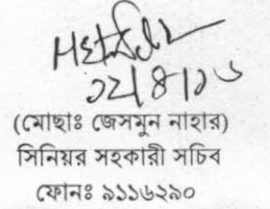 ১২/৪/১৬
(মোছাঃ জেসমুন নাহার)
সিনিয়র সহকারী সচিব
ফোনঃ ৯১১৬২৯০